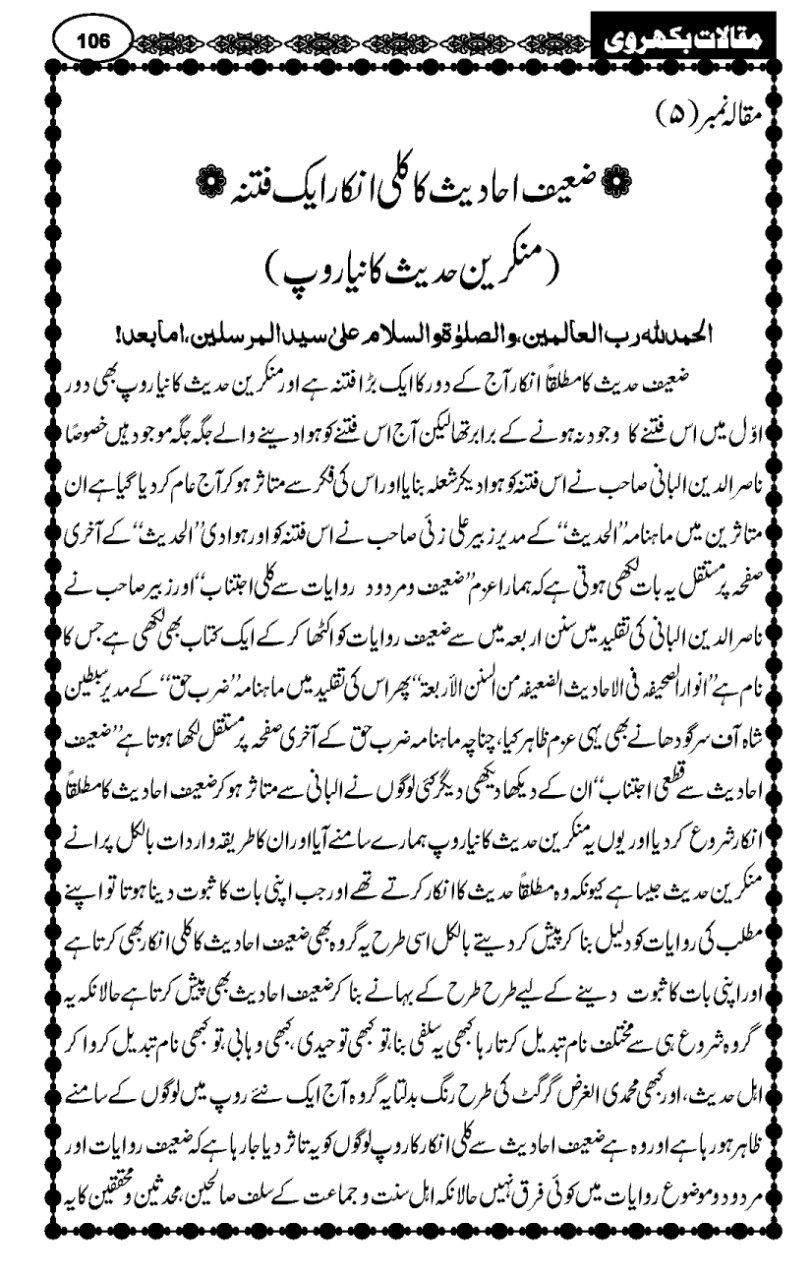 مقالات بکھروی
106
مقالہ نمبر (۵)
ضعیف احادیث کا کلی انکار ایک فتنہ
(منکرین حدیث کا نیا روپ)
الحمد للہ رب العالمین، والصلوٰۃ والسلام علیٰ سید المرسلین، اما بعد!
ضعیف حدیث کا مطلقاً انکار آج کے دور کا ایک بڑا فتنہ ہے اور منکرین حدیث کا نیا روپ بھی دور
اوّل میں اس فتنے کا وجود نہ ہونے کے برابر تھا لیکن آج اس فتنے کو ہوا دینے والے جگہ جگہ موجود ہیں خصوصًا
ناصر الدین البانی صاحب نے اس فتنہ کو ہوا دیکر شعلہ بنایا اور اس کی فکر سے متاثر ہو کر آج عام کر دیا گیا ہے ان
متاثرین میں ماہنامہ ’’الحدیث‘‘ کے مدیر زبیر علی زئی صاحب نے اس فتنہ کو اور ہوا دی ’’الحدیث‘‘ کے آخری
صفحہ پر مستقل یہ بات لکھی ہوتی ہے کہ ہمارا عزم ’’ضعیف و مردود روایات سے کلی اجتناب‘‘ اور زبیر صاحب نے
ناصر الدین البانی کی تقلید میں سنن اربعہ میں سے ضعیف روایات کو اکٹھا کر کے ایک کتاب بھی لکھی ہے جس کا
نام ہے ’’انوار الصحیفہ فی الاحادیث الضعیفہ من السنن الأربعۃ‘‘ پھر اس کی تقلید میں ماہنامہ ’’ضرب حق‘‘ کے مدیر سبطین
شاہ آف سرگودھا نے بھی یہی عزم ظاہر کیا، چناچہ ماہنامہ ضرب حق کے آخری صفحہ پر مستقل لکھا ہوتا ہے ’’ضعیف
احادیث سے قطعی اجتناب‘‘ ان کے دیکھا دیکھی دیگر کئی لوگوں نے البانی سے متاثر ہو کر ضعیف احادیث کا مطلقاً
انکار شروع کر دیا اور یوں یہ منکرین حدیث کا نیا روپ ہمارے سامنے آیا اور ان کا طریقہ واردات بالکل پرانے
منکرین حدیث جیسا ہے کیونکہ وہ مطلقاً حدیث کا انکار کرتے تھے اور جب اپنی بات کا ثبوت دینا ہوتا تو اپنے
مطلب کی روایات کو دلیل بنا کر پیش کر دیتے بالکل اسی طرح یہ گروہ بھی ضعیف احادیث کا کلی انکار بھی کرتا ہے
اور اپنی بات کا ثبوت دینے کے لیے طرح طرح کے بہانے بنا کر ضعیف احادیث بھی پیش کرتا ہے حالانکہ یہ
گروہ شروع ہی سے مختلف نام تبدیل کرتا رہا کبھی یہ سلفی بنا، تو کبھی توحیدی، کبھی وہابی، تو کبھی نام تبدیل کروا کر
اہل حدیث، اور کبھی محمدی الغرض گرگٹ کی طرح رنگ بدلتا یہ گروہ آج ایک نئے روپ میں لوگوں کے سامنے
ظاہر ہو رہا ہے اور وہ ہے ضعیف احادیث سے کلی انکار کا روپ لوگوں کو یہ تاثر دیا جا رہا ہے کہ ضعیف روایات اور
مردود و موضوع روایات میں کوئی فرق نہیں حالانکہ اہل سنت و جماعت کے سلف صالحین، محدثین و محققین کا یہ